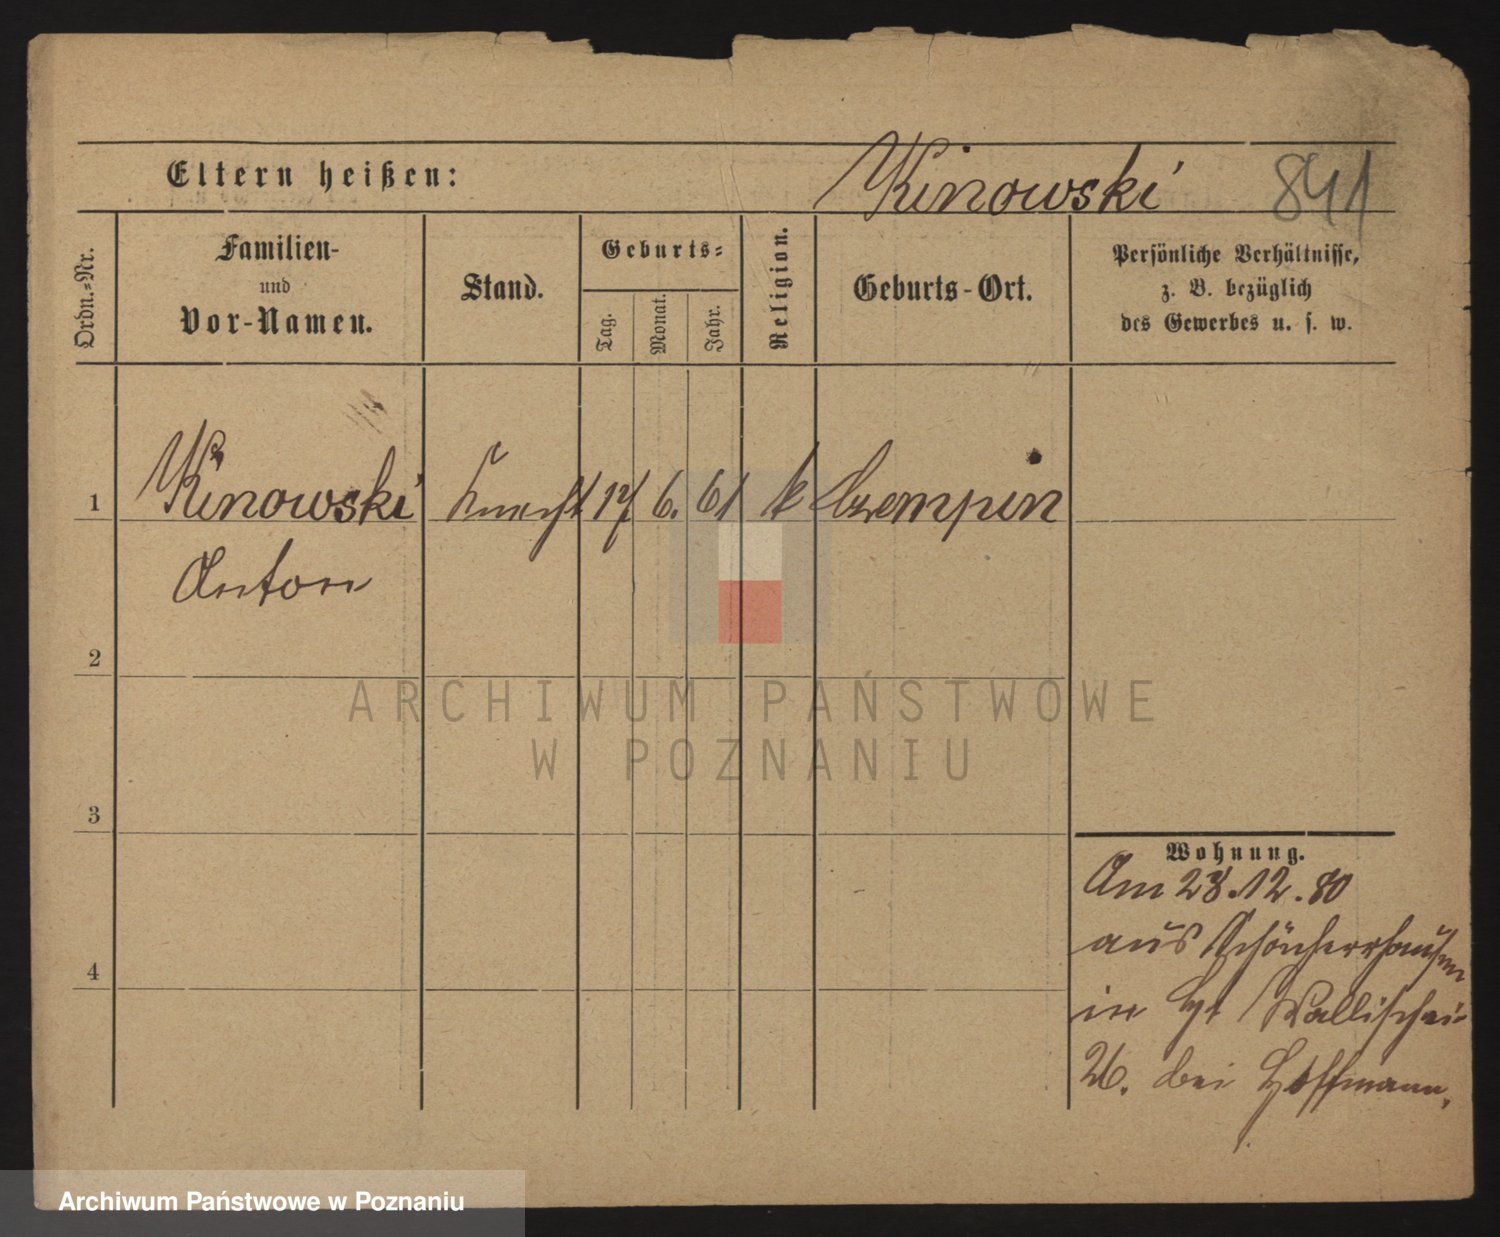 Eltern heißen: Kinowski 841
Ordn.-Nr.
Familien-
und
Vor-Namen.
Stand.
Geburts-
Tag. Monat. Jahr.
Religion.
Geburts-Ort.
Persönliche Verhältnisse,
z. B. bezüglich
des Gewerbes u. s. w.
1 Kinowski Knecht 17 6. 61 k Czempin
Anton
2
3
4
Wohnung.
Am 28.12.80
aus
in Wallischei-
26. bei Hoffmann.
ARCHIWUM PAŃSTWOWE
W POZNANIU
Archiwum Państwowe w Poznaniu